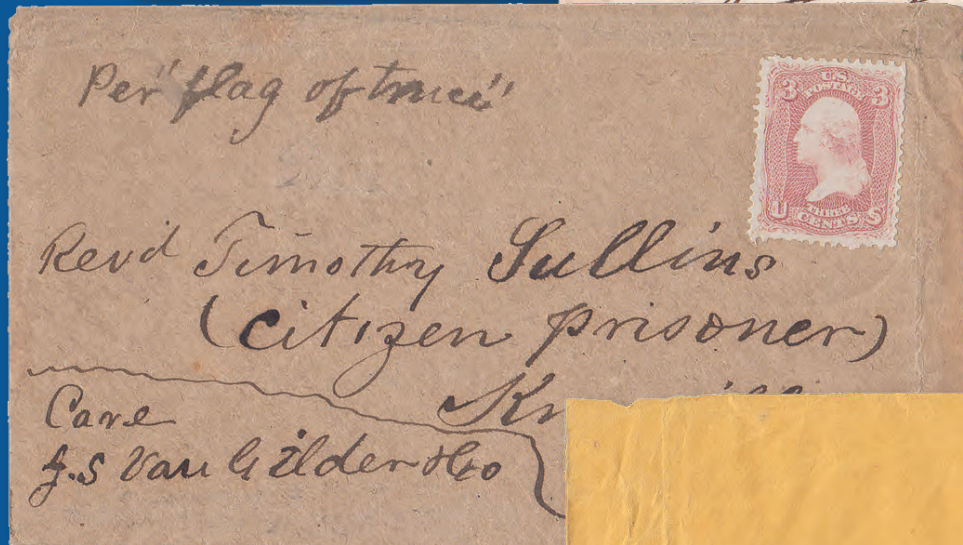 Per "flag of truce"
U.S.
POSTAGE
3 3
THREE
U CENTS S
Revd Timothy Sullins
(citizen prisoner)
Care
J.S Van Gilder & Co